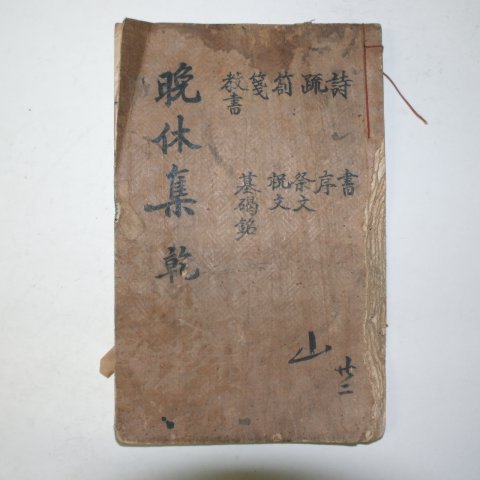 晩休集 乾
詩 書
疏 序
箚 祭文
箋 祝文
教書 墓碣銘
山
廿二